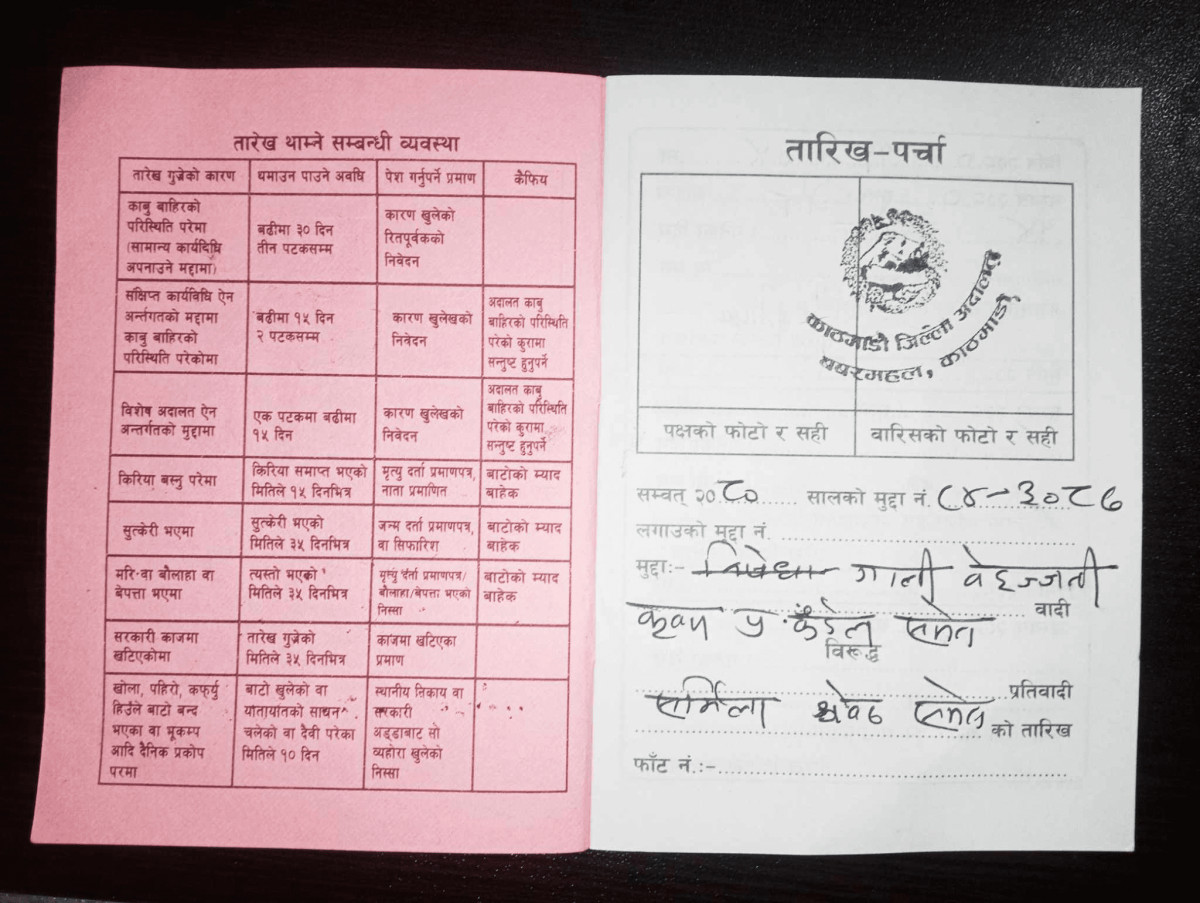 तारेख थाम्ने सम्बन्धी व्यवस्था
तारेख गुज्रेको कारण
थमाउन पाउने अवधि
पेश गर्नुपर्ने प्रमाण
कैफिय
काबु बाहिरको
परिस्थिति परेमा
(सामान्य कार्यदिधि
अपनाउने मद्दामा)
बढीमा ३० दिन
तीन पटकसम्म
कारण खुलेको
रितपूर्वकको
निवेदन
संक्षिप्त कार्यविधि ऐन
अर्न्तगतको मद्दामा
काबु बाहिरको
परिस्थिति परेकोमा
बढीमा १५ दिन
२ पटकसम्म
कारण खुलेखको
निवेदन
अदालत काबु
बाहिरको परिस्थिति
परेको कुरामा
सन्तुष्ट हुनुपर्ने
विशेष अदालत ऐन
अन्तर्गतको मुद्दामा
एक पटकमा बढीमा
१५ दिन
कारण खुलेखको
निवेदन
अदालत काबु
बाहिरको परिस्थिति
परेको कुरामा
सन्तुष्ट हुनुपर्ने
किरिया बस्नु परेमा
किरिया समाप्त भएको
मितिले १५ दिनभित्र
मृत्यु दर्ता प्रमाणपत्र,
नाता प्रमाणित
बाटोको म्याद
बाहेक
सुत्केरी भएमा
सुत्केरी भएको
मितिले ३५ दिनभित्र
जन्म दर्ता प्रमाणपत्र,
वा सिफारिश
बाटोको म्याद
बाहेक
मरि वा बौलाहा वा
बेपत्ता भएमा
त्यस्तो भएको
मितिले ३५ दिनभित्र
मृत्यु दर्ता प्रमाणपत्र/
बौलाहा/बेपत्ता भएको
निस्सा
बाटोको म्याद
बाहेक
सरकारी काजमा
खटिएकोमा
तारेख गुज्रेको
मितिले ३५ दिनभित्र
काजमा खटिएका
प्रमाण
खोला, पहिरो, कर्फ्यु
हिउँले बाटो बन्द
भएका वा भूकम्प
आदि दैनिक प्रकोप
परमा
बाटो खुलेको वा
यातायातको साधन
चलेको वा दैवी परेका
मितिले १० दिन
स्थानीय निकाय वा
सरकारी
अड्डाबाट सो
व्यहोरा खुलेको
निस्सा
तारिख-पर्चा
काठमाडौं जिल्ला अदालत
बबरमहल, काठमाडौं
पक्षको फोटो र सही
वारिसको फोटो र सही
सम्वत् २०८० सालको मुद्दा नं. ८४-३०८७
लगाउको मुद्दा नं.
मुद्दाः- गाली वेइज्जती
कृष्ण प्र. कंडेल समेत वादी
विरूद्ध
प्रतिवादी
सर्मिला श्रेष्ठ समेत को तारिख
फाँट नं.:-